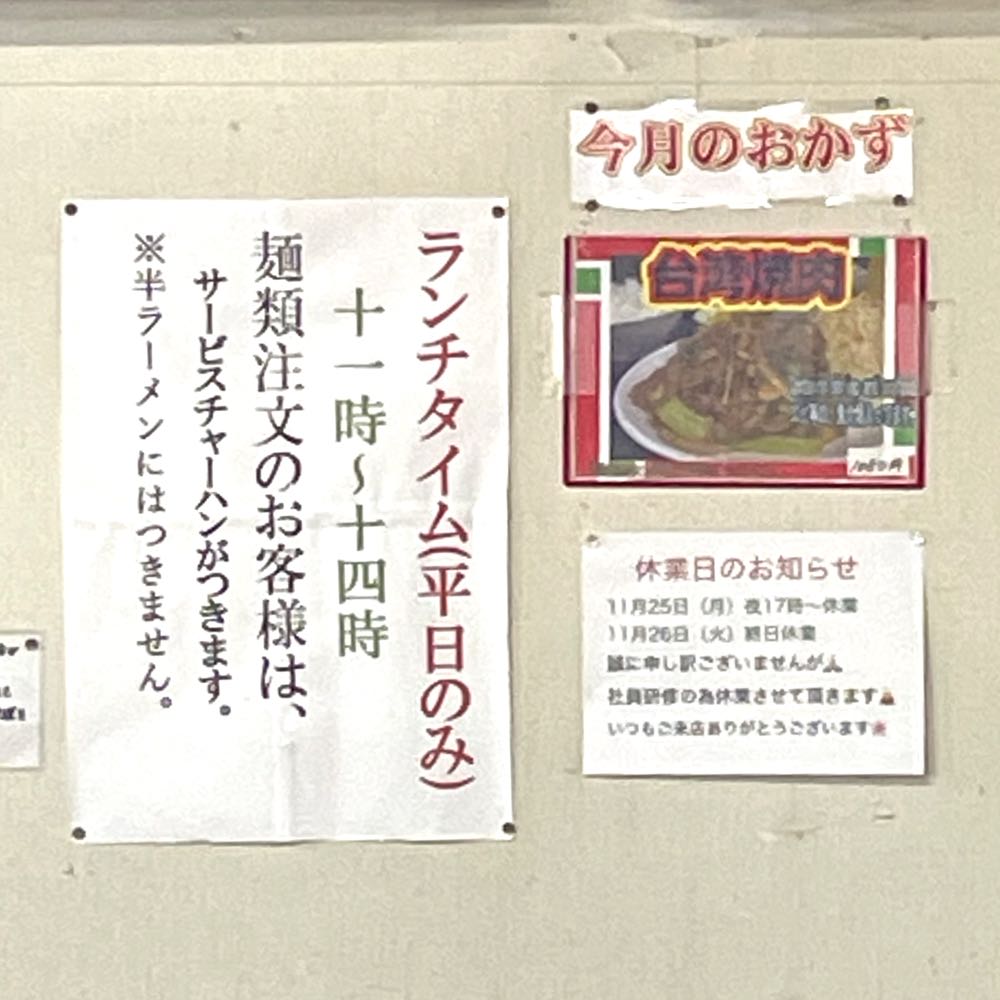 ランチタイム(平日のみ)
十一時～十四時
麺類注文のお客様は、
サービスチャーハンがつきます。
※半ラーメンにはつきません。
今月のおかず
台湾焼肉
1080円
休業日のお知らせ
11月25日（月）夜17時～休業
11月26日（火）終日休業
誠に申し訳ございませんが🙏
社員研修の為休業させて頂きます🙇
いつもご来店ありがとうございます